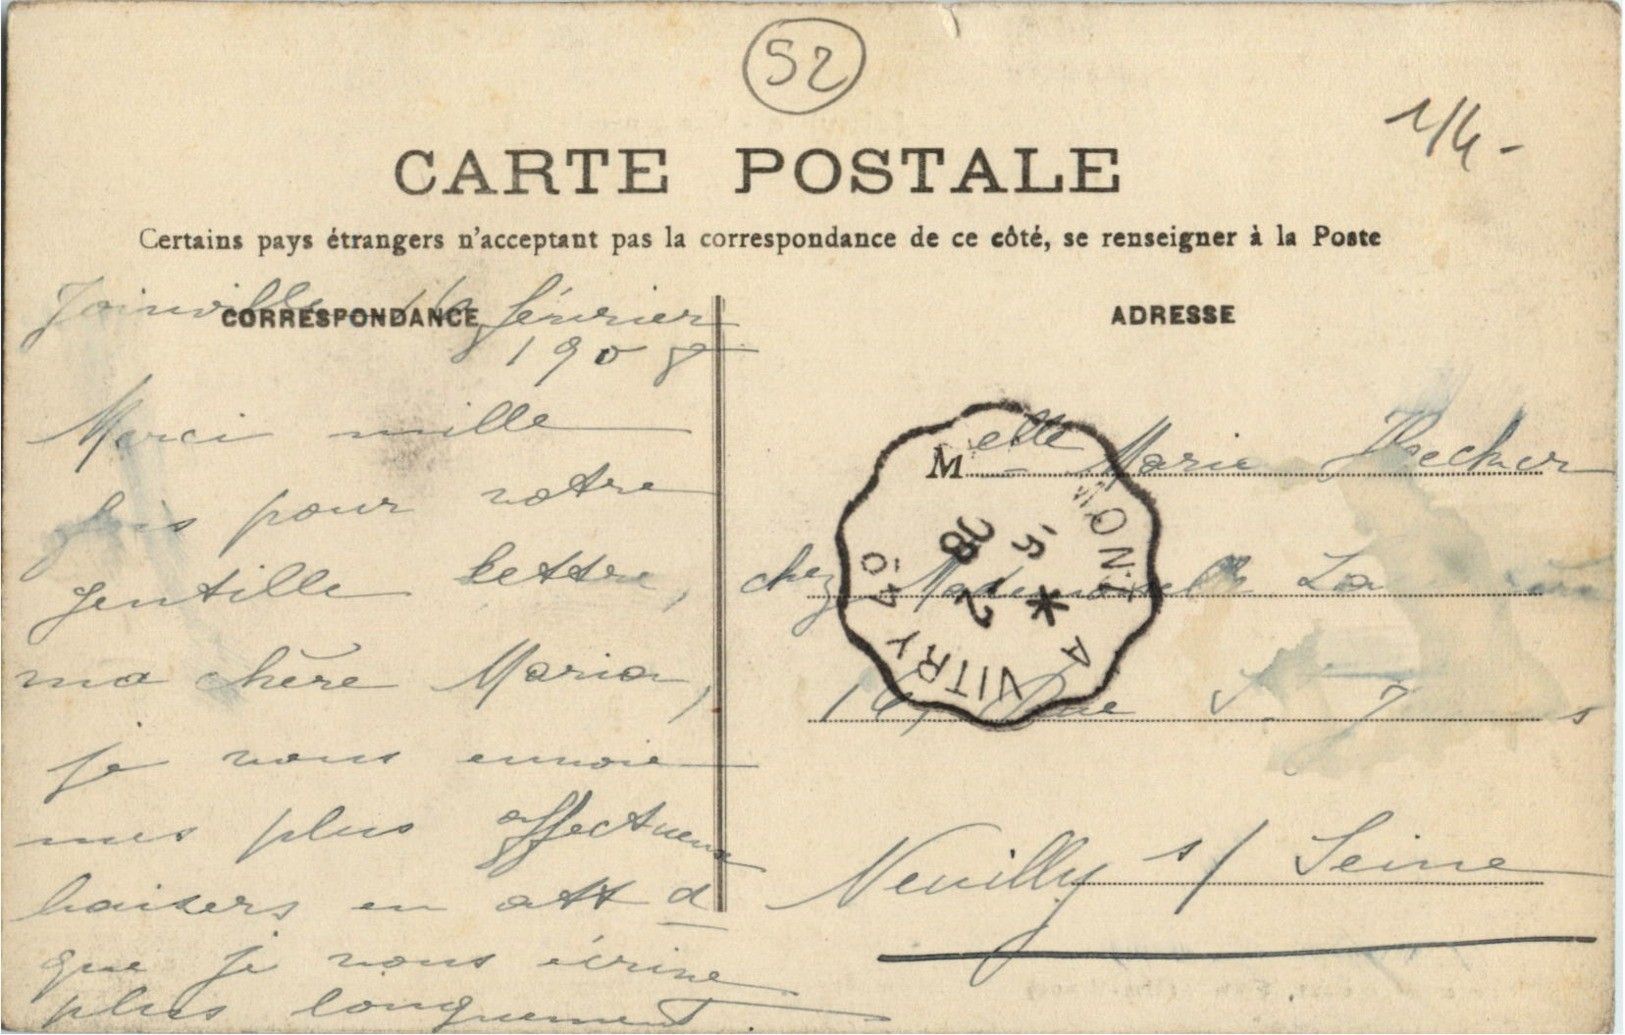 52
1/4-
CARTE POSTALE
Certains pays étrangers n'acceptant pas la correspondance de ce côté, se renseigner à la Poste
CORRESPONDANCE
Joinville 14 février
1908
Merci mille
fois pour votre
gentille lettre,
ma chère Maria,
je vous envoie
mes plus affectueux
baisers en att d
que je vous écrive
plus longuement.
ADRESSE
Melle Marie
chez Mademoiselle La
Rue
Neuilly s/ Seine
A VITRY
15
2
08